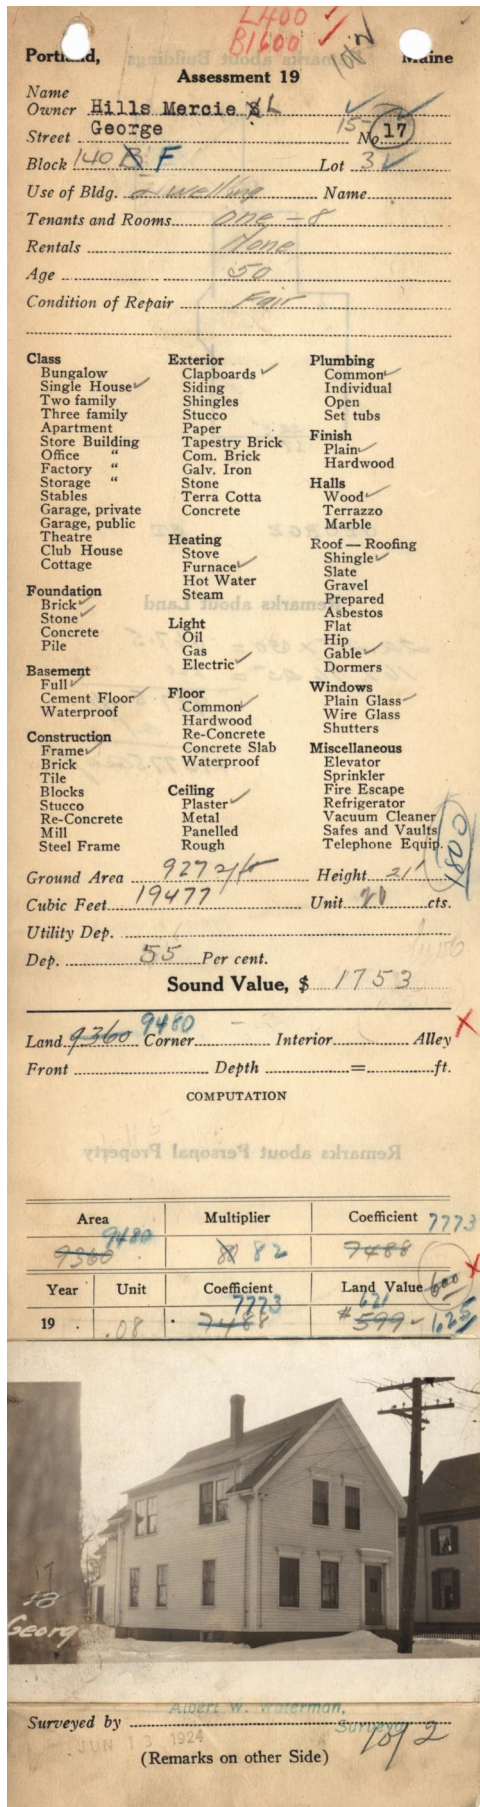 L400 ✓
B1600 ✓
1 of 2
Portland, Maine
Assessment 19
Name
Owner Hills Mercie L
Street George No. 17
Block 140 B F Lot 3
Use of Bldg. Dwelling Name
Tenants and Rooms one - 8
Rentals None
Age 50
Condition of Repair Fair
Class
Bungalow
Single House ✓
Two family
Three family
Apartment
Store Building
Office "
Factory "
Storage "
Stables
Garage, private
Garage, public
Theatre
Club House
Cottage
Foundation
Brick ✓
Stone ✓
Concrete
Pile
Basement
Full ✓
Cement Floor ✓
Waterproof
Construction
Frame ✓
Brick
Tile
Blocks
Stucco
Re-Concrete
Mill
Steel Frame
Exterior
Clapboards ✓
Siding
Shingles
Stucco
Paper
Tapestry Brick
Com. Brick
Galv. Iron
Stone
Terra Cotta
Concrete
Heating
Stove
Furnace ✓
Hot Water
Steam
Light
Oil
Gas
Electric ✓
Floor
Common ✓
Hardwood
Re-Concrete
Concrete Slab
Waterproof
Ceiling
Plaster ✓
Metal
Panelled
Rough
Plumbing
Common ✓
Individual
Open
Set tubs
Finish
Plain ✓
Hardwood
Halls
Wood ✓
Terrazzo
Marble
Roof — Roofing
Shingle ✓
Slate
Gravel
Prepared
Asbestos
Flat
Hip
Gable ✓
Dormers
Windows
Plain Glass ✓
Wire Glass
Shutters
Miscellaneous
Elevator
Sprinkler
Fire Escape
Refrigerator
Vacuum Cleaner
Safes and Vaults
Telephone Equip.
1800
Ground Area 927 Height 21'
Cubic Feet 19477 Unit 20 cts.
Utility Dep.
Dep. 55 Per cent.
Sound Value, $ 1753
Land 9360 9480 Corner Interior Alley
Front Depth = ft.
COMPUTATION
Area Multiplier Coefficient 7773
9360 9480 80 82 7488
Year Unit Coefficient Land Value 600
19 .08 7488 7773 $ 599 621 625
17
George
Surveyed by Albert W. Waterman,
Surveyor
JUN 13 1924
1 of 2
(Remarks on other Side)